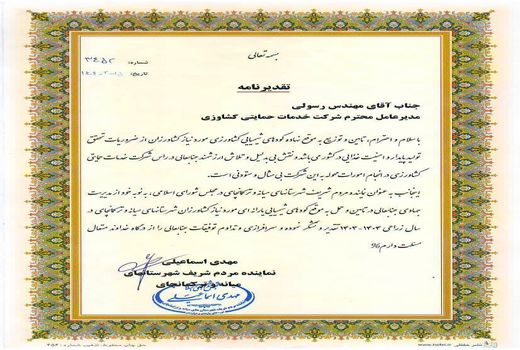 بسمه تعالی
شماره: ۳۴۵۲
تاریخ:
تقدیرنامه
جناب آقای مهندس رسولی
مدیرعامل محترم شرکت خدمات حمایتی کشاورزی
با سلام و احترام، تامین و توزیع به موقع نهاده کودهای شیمیایی کشاورزی مورد نیاز کشاورزان از ضروریات تحقق
تولید پایدار و امنیت غذایی در کشور می باشد و نقش بی بدیل و تلاش ارزشمند جنابعالی در راس شرکت خدمات حمایتی
کشاورزی در انجام امورات محوله به این شرکت بی مثال و ستودنی است.
اینجانب به عنوان نماینده مردم شریف شهرستانهای میانه و ترکمانچای در مجلس شورای اسلامی، به نوبه خود از مدیریت
جهادی جنابعالی در تامین و حمل به موقع کودهای شیمیایی یارانه ای مورد نیاز کشاورزان شهرستانهای میانه و ترکمانچای در
سال زراعی ۱۴۰۳-۱۴۰۲ تقدیر و تشکر نموده و سرافرازی و تداوم توفیقات جنابعالی را از درگاه خداوند متعال
مسئلت دارم.
مهدی اسماعیلی
نماینده مردم شریف شهرستانهای
میانه و ترکمانچای
مهدی اسماعیلی